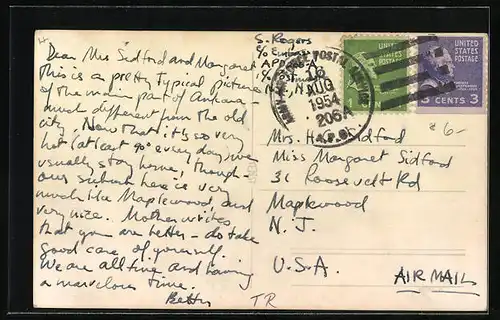 Dear Mrs Sidford and Margaret
This is a pretty typical picture
of the main part of Ankara -
much different from the old
city. Now that it is so very
hot (at least 90° every day) we
usually stay home, though -
our suburb here is very
much like Maplewood, and
very nice. Mother writes
that you are better - do take
good care of yourself.
We are all fine and having
a marvelous time.
Betty
S. Rogers
c/o
APO 206-A
c/o Postmaster
N.Y., N.Y.
POSTAL SERVICE
18
AUG
1954
206A
A.P.O.
1
UNITED STATES
POSTAGE
3 CENTS 3
6-
Mrs. H. Sidford
Miss Margaret Sidford
31 Roosevelt Rd
Maplewood
N. J.
U.S.A.
AIR MAIL
TR